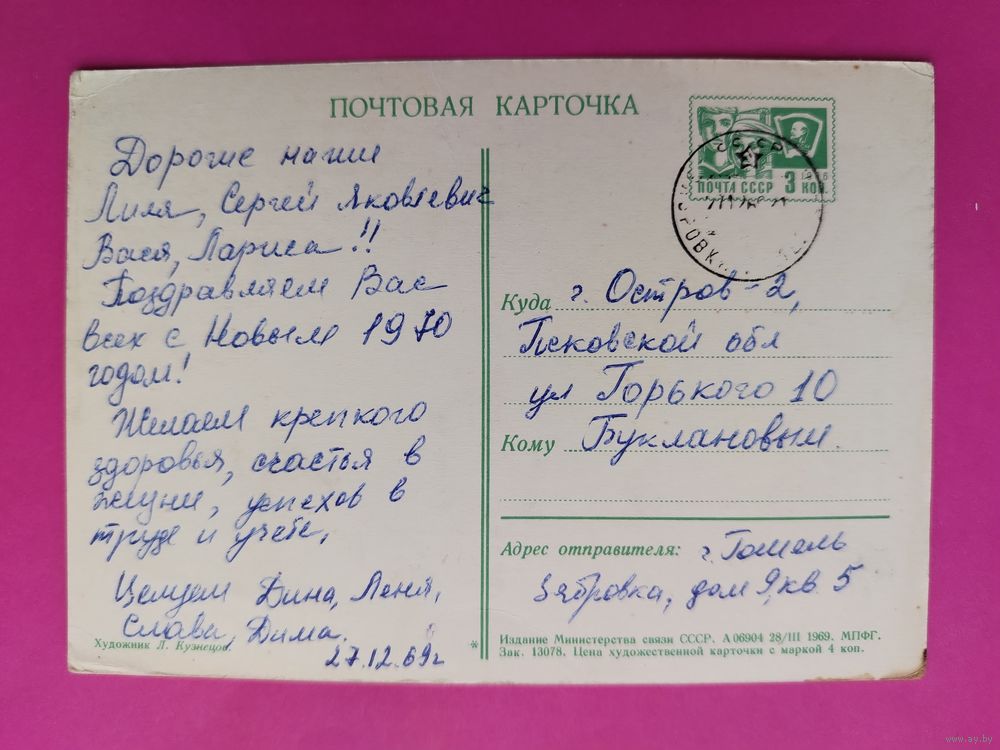 ПОЧТОВАЯ КАРТОЧКА
Дорогие наши
Лиля, Сергей Яковлевич
Вася, Лариса!!
Поздравляем Вас
всех с Новым 1970
годом!
Желаем крепкого
здоровья, счастья в
жизни, успехов в
труде и учебе,
Целуем Дина, Леня,
Слава, Дима.
27.12.69г
Художник Л. Кузнецов
ПОЧТА СССР 3 коп.
Куда г. Остров-2,
Псковской обл
ул Горького 10
Кому Буклановым.
Адрес отправителя: г. Гомель
Зябровка, дом 9, кв 5
Издание Министерства связи СССР. А 06904 28/III 1969. МПФГ.
Зак. 13078. Цена художественной карточки с маркой 4 коп.
www.ay.by